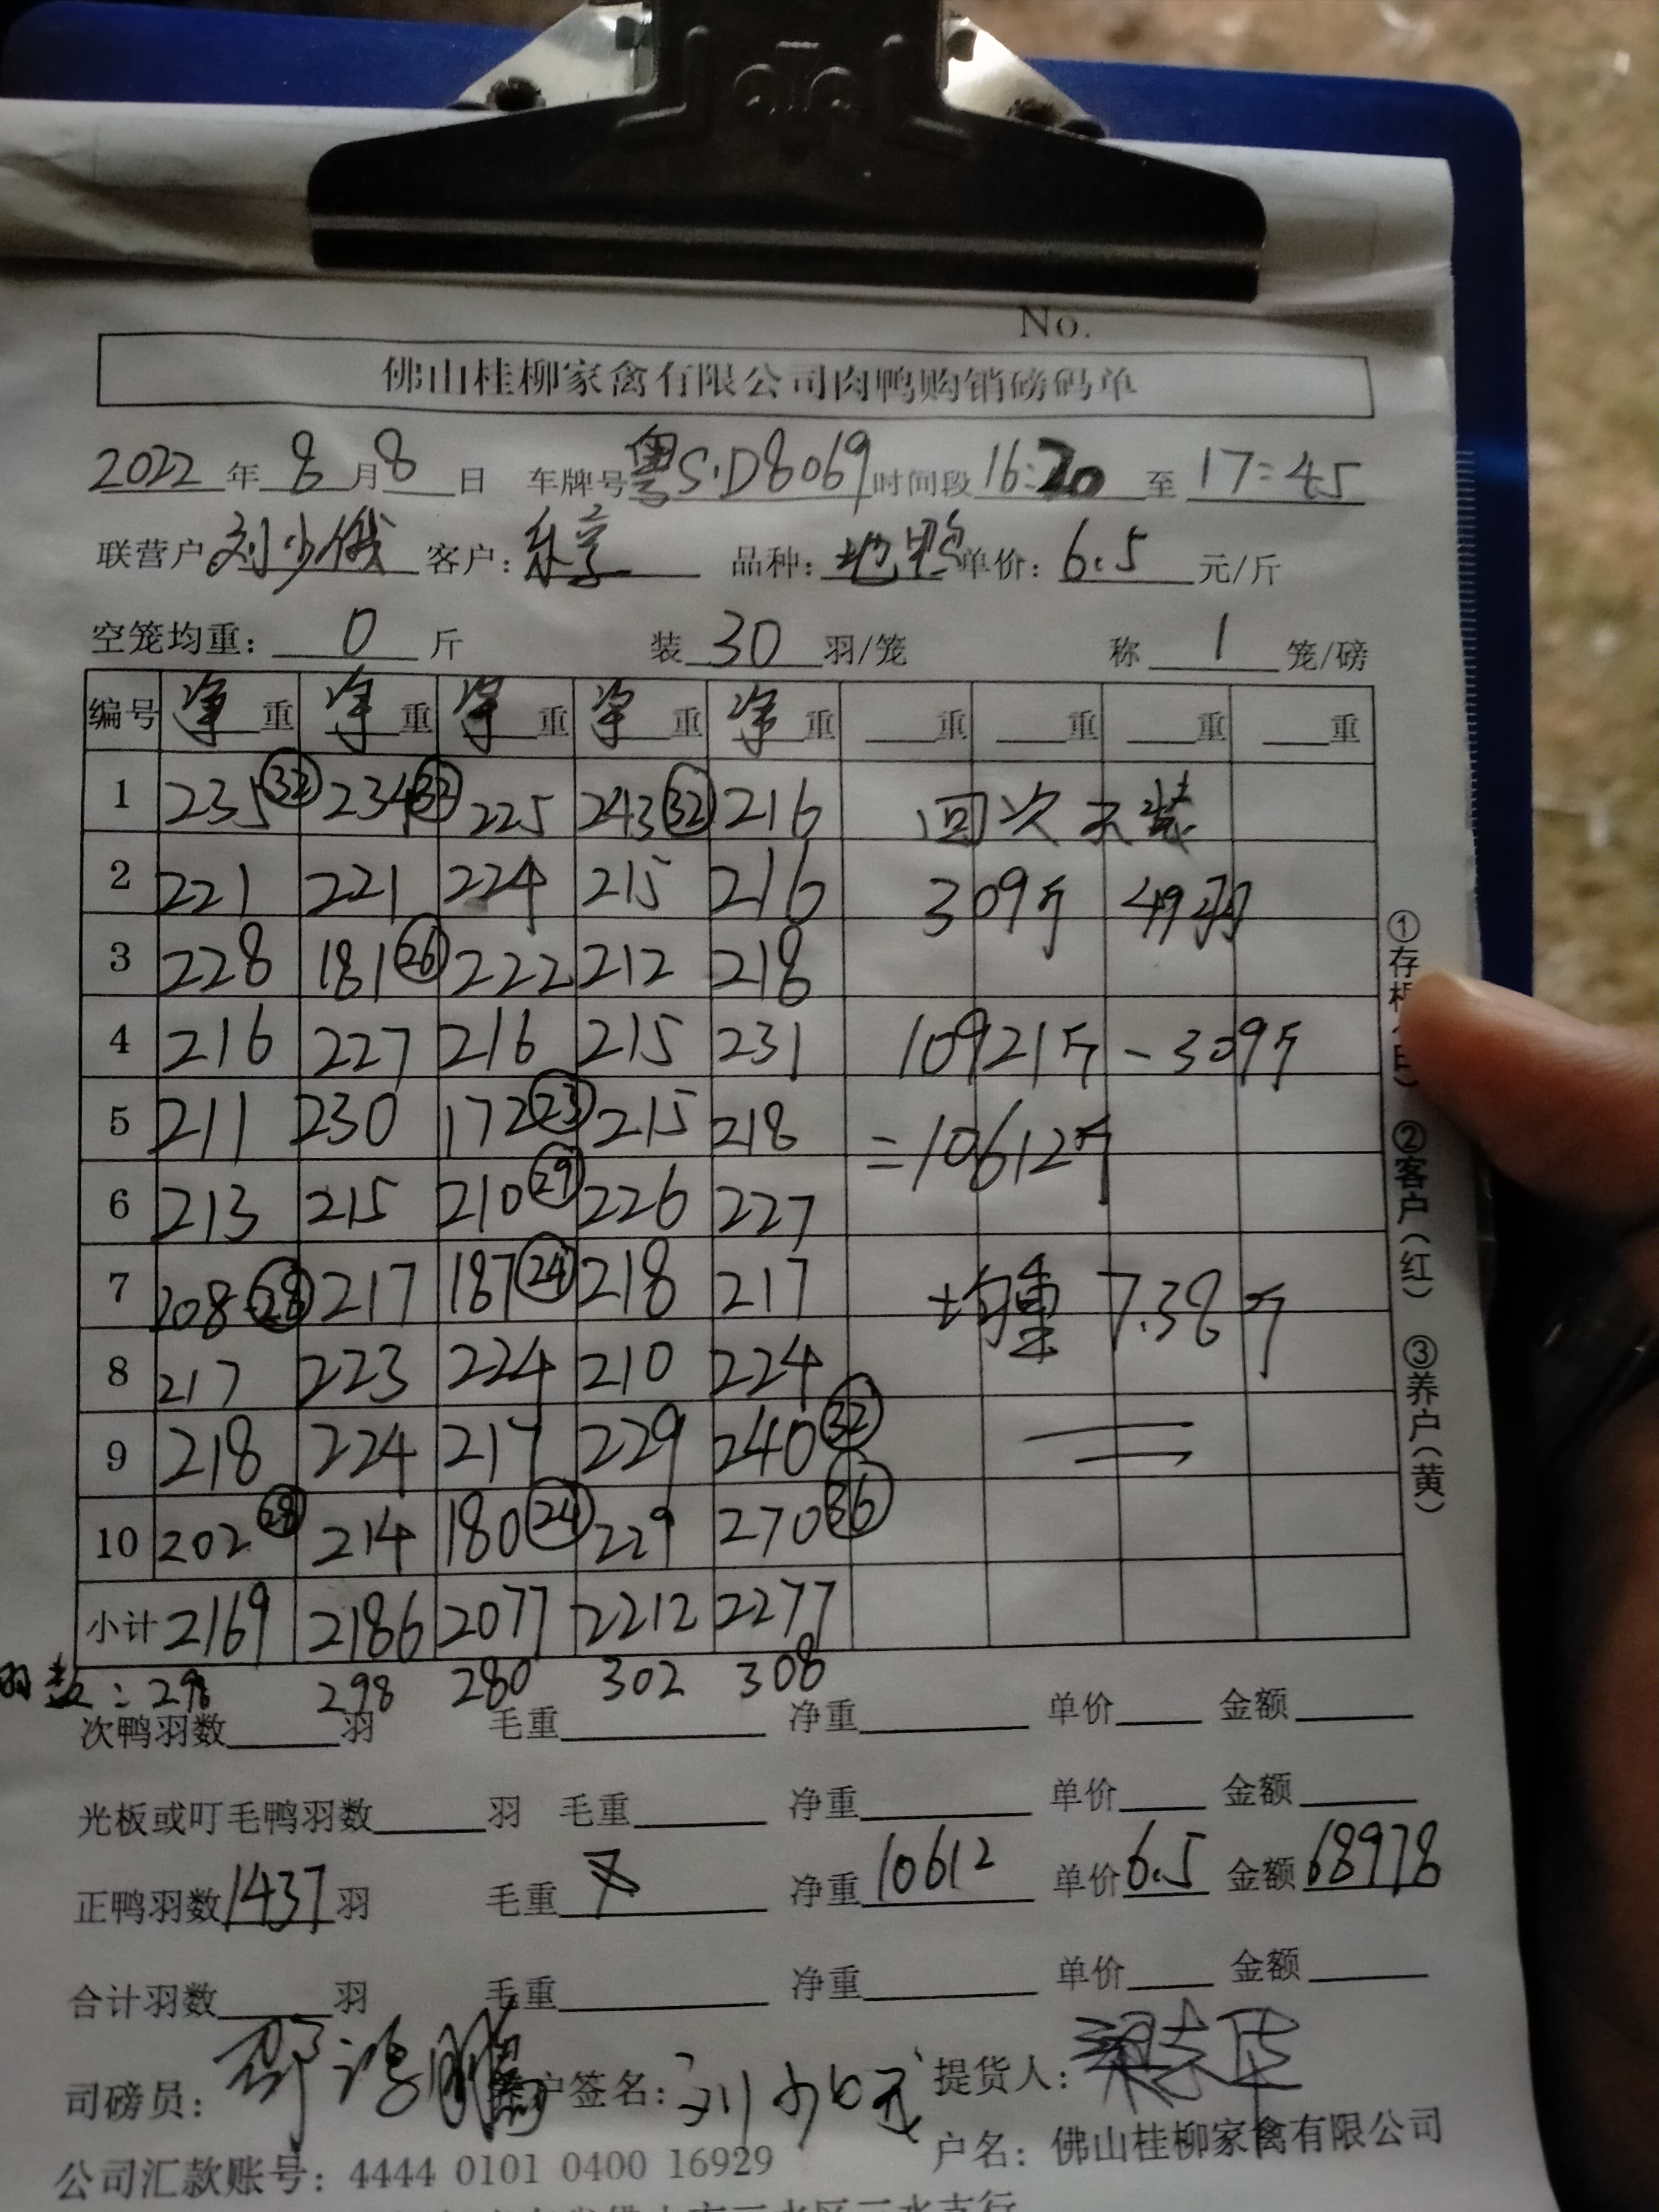 No.
佛山桂柳家禽有限公司肉鸭购销磅码单
2022 年 8 月 8 日 车牌号 粤S·D8069 时间段 16:20 至 17:45
联营户 刘少俄 客户: 品种: 地鸭 单价: 6.5 元/斤
空笼均重: 0 斤 装 30 羽/笼 称 1 笼/磅
编号 净重 净重 净重 净重 净重 重 重 重 重
1 235 32 234 32 225 243 32 216 回次不装
2 221 221 224 215 216 309斤 49羽
3 228 181 26 222 212 218
4 216 227 216 215 231 10921斤-309斤
5 211 230 172 23 215 218 =10612斤
6 213 215 210 29 226 227
7 208 28 217 187 24 218 217 均重 7.38斤
8 217 223 224 210 224
9 218 224 217 229 240 32
10 202 28 214 180 24 229 270 36
小计 2169 2186 2077 2212 2277
羽数: 298 298 280 302 308
次鸭羽数 羽 毛重 净重 单价 金额
光板或叮毛鸭羽数 羽 毛重 净重 单价 金额
正鸭羽数 1437 羽 毛重 净重 10612 单价 6.5 金额 68978
合计羽数 羽 毛重 净重 单价 金额
司磅员: 户签名: 提货人:
公司汇款账号: 4444 0101 0400 16929 户名: 佛山桂柳家禽有限公司
①存根 ②客户(红) ③养户(黄)